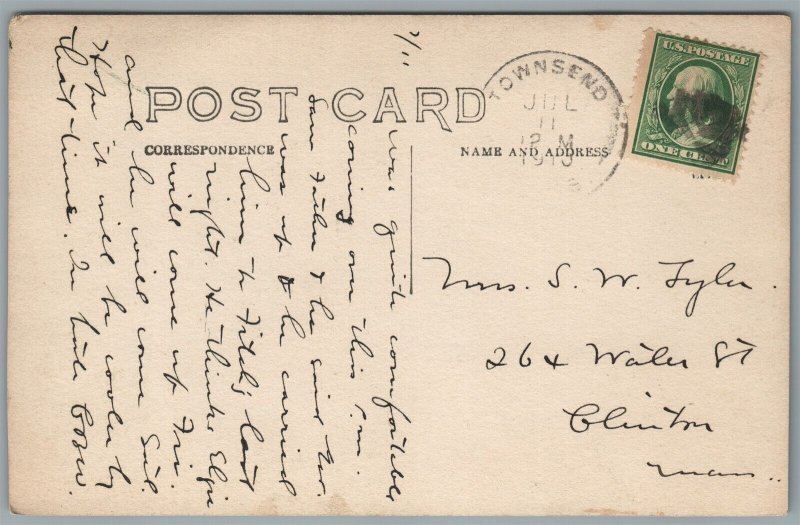 POST CARD
CORRESPONDENCE
NAME AND ADDRESS
TOWNSEND
JUL
11
M
1913
U.S. POSTAGE
ONE CENT
Mrs. S. W. Tyler.
264 Water St
Clinton
Mass..
7/11
Was quite comfortable
coming over this P.m.
Saw Father & he said Mr.
was at & he carried
him to Fitch'g last
night. He thinks Elsie
will come up Fri.
and he will come Sat.
Hope it will be cooler by
that time. In haste